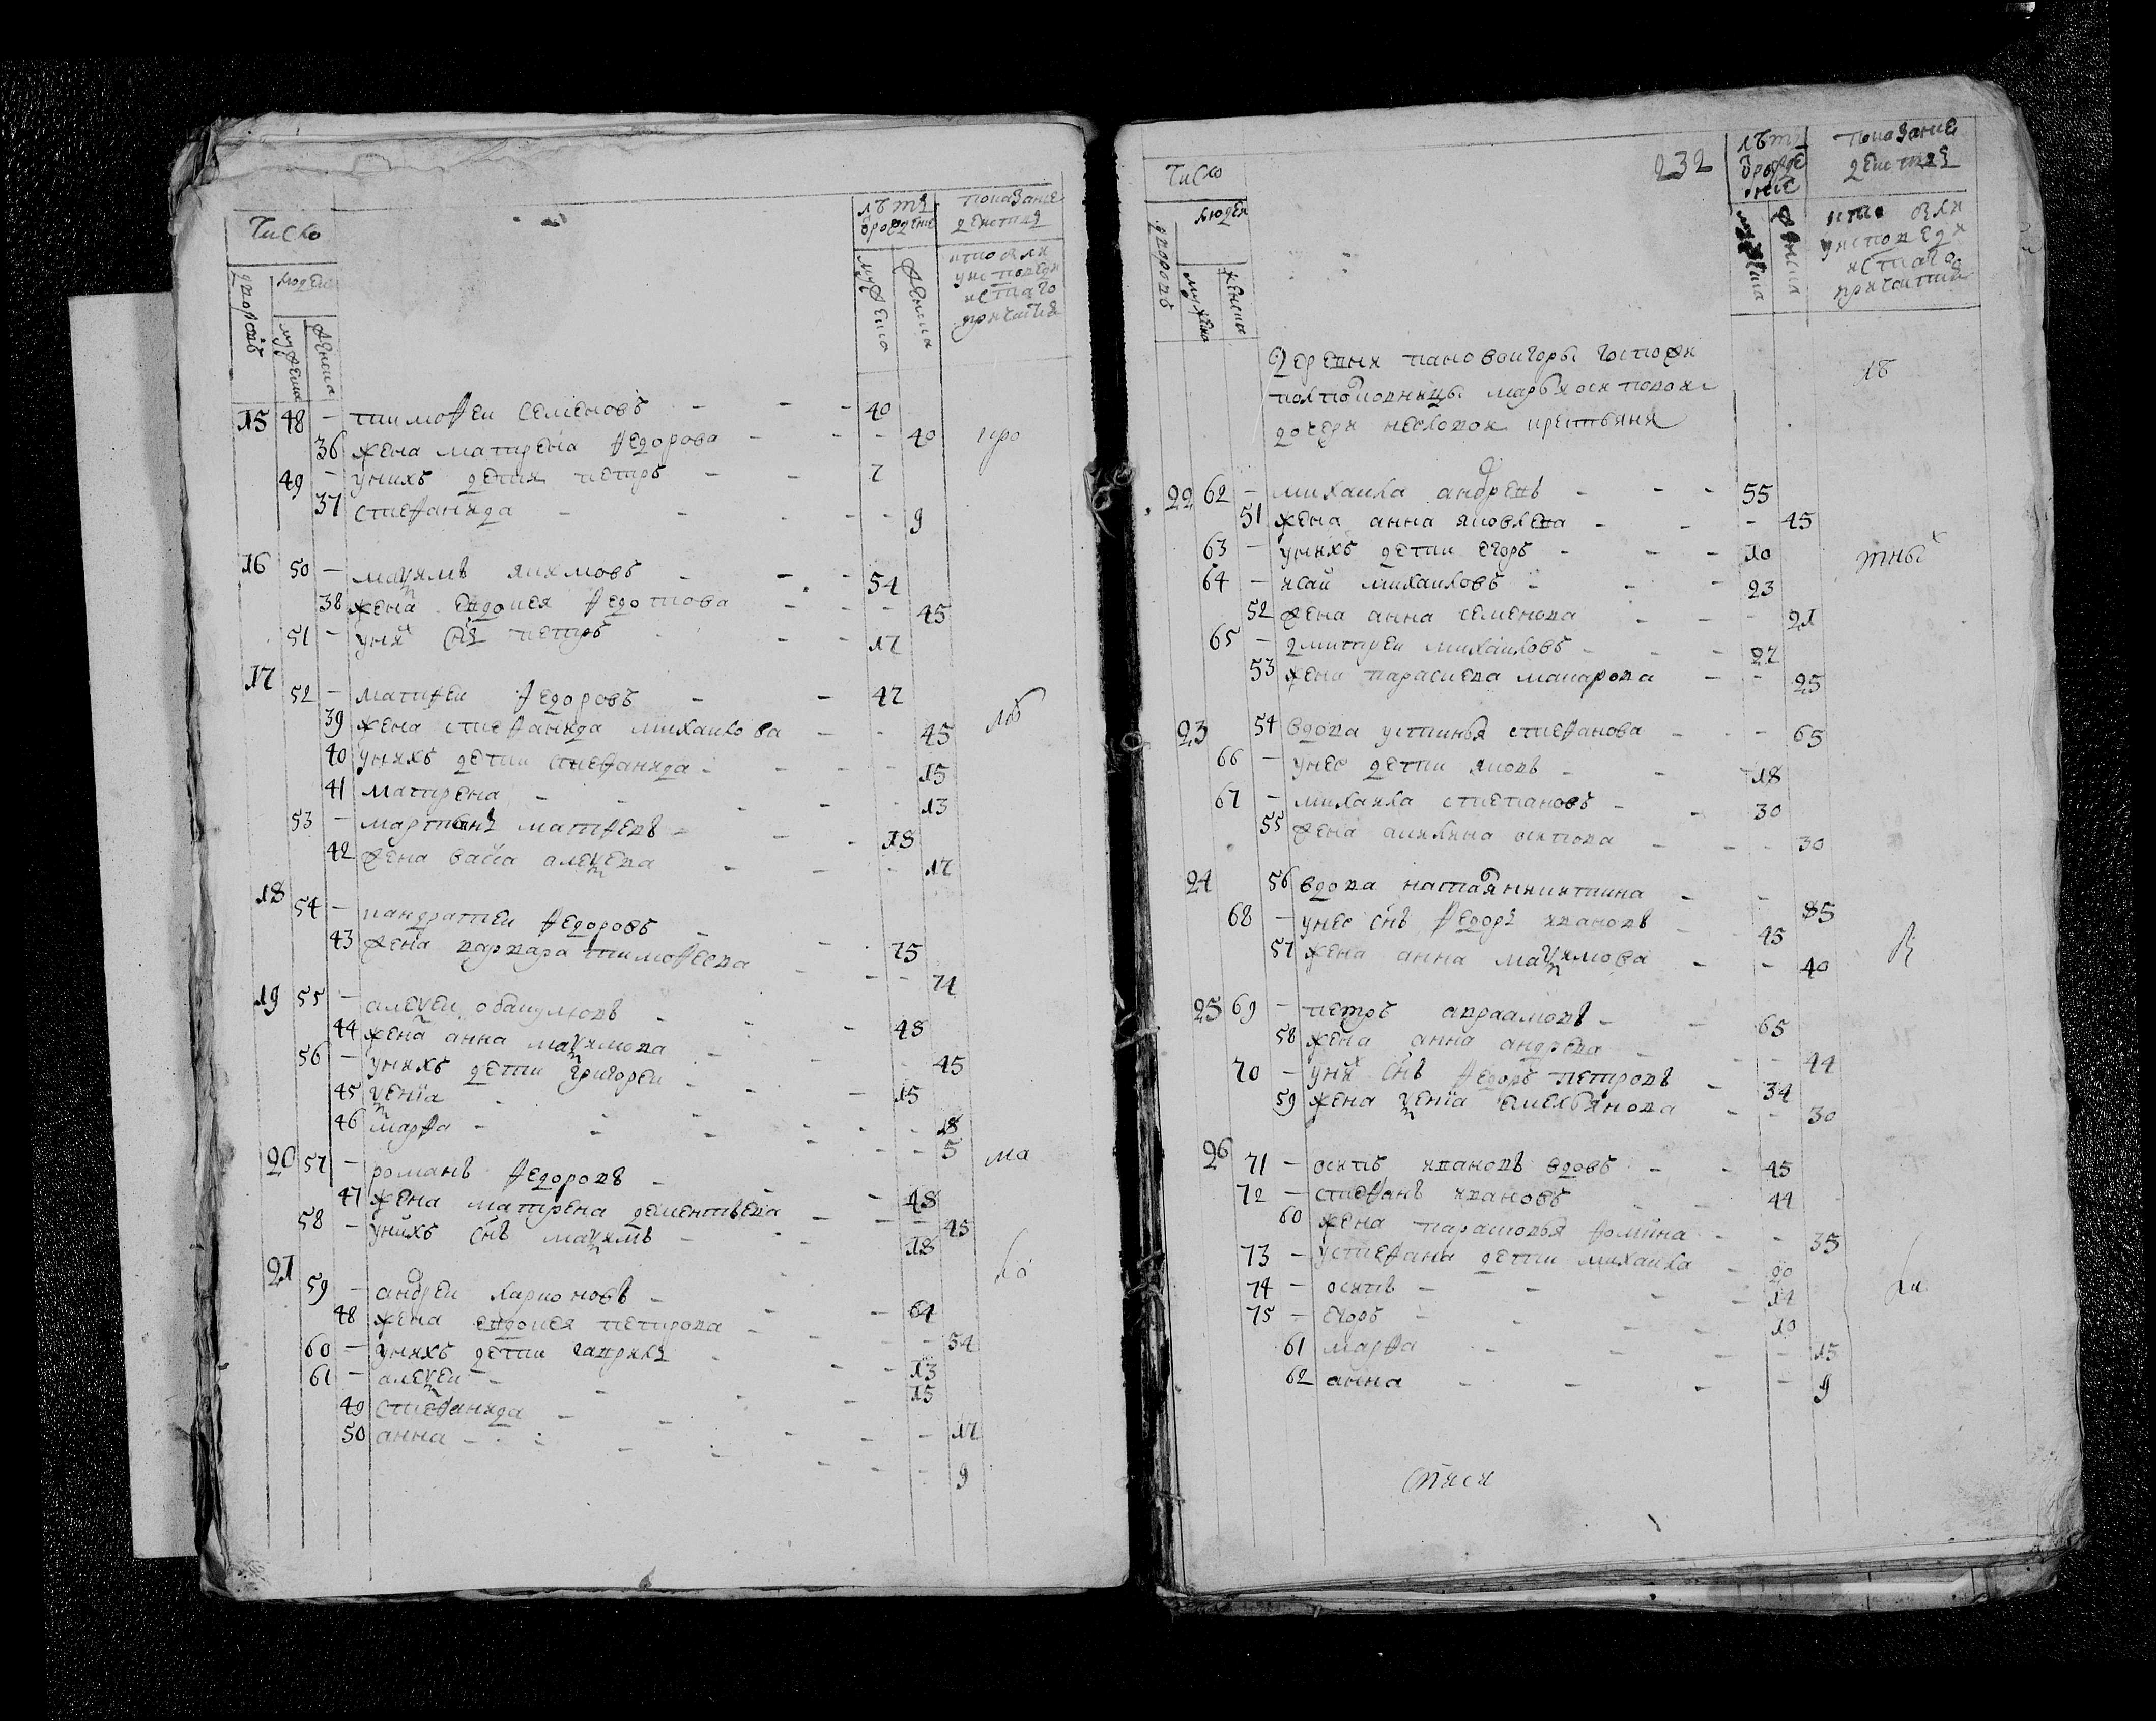 Число
людеи
дворовъ
мужеска
женска
лѣтъ
ѿрождения
мужеска
женска
показание
деиствия
кто были
уисповеди
истаго
причастия
15 48 - тимофеи семеновъ - - - 40
36 жена матрена федорова - - - 40
49 - унихъ дети петръ - - 7
37 стефанида - - - - 9
16 50 - маѯимъ якимовъ - - - 54
38 жена евдокея федотова - - - 45
51 - унихъ снъ петръ - - 17
17
52 - матфеи федоровъ - - 47
39 жена стефанида михаилова - - 45
40 унихъ дети стефанида - - - - 15
41 матрена - - - - - 13
53 - мартынъ матфевъ - - - 18
42 жена васса алеѯева - - - 17
18 54 - кандратеи федоровъ - - 75
43 жена варвара тимофеева - - - 74
19 55 - алеѯеи абакумовъ - - - 48
44 жена анна маѯимова - - - 45
56 - унихъ дети григореи - - - 15
45 ѯения - - - - 18
46 марфа - - - - - 5
20 57 - романъ федоровъ - - - 48
47 жена матрена дементьева - - - 45
58 - унихъ снъ маѯимъ - - - 18
21
59 - андреи ларионовъ - - - 64
48 жена евдокея петрова - - - 54
60 - унихъ дети гаврила - - - 13
61 - алеѯеи - - - 15
49 стефанида - - - - 17
50 анна - - - - - 9
про
лю
ма
ла
232
Число
людеи
дворовъ
мужеска
женска
лѣтъ
ѿрожде
ние
мужеска
женска
показание
деиствия
кто были
уисповеди
истаго
причастия
Деревня пановыгоры госпожи
полполковницы марьи осиповои
дочери несловои крестьяня
22 62 - михаила андревъ - - - 55
51 жена анна яковлева - - - 45
63 - унихъ дети егоръ - - - 10
64 - исаи михаиловъ - - - 23
52 жена анна семенова - - - 21
65 - дмитреи михаиловъ - - - 27
53 жена параскева макарова - - 25
23 54 вдова устинья стефанова - - - 65
66 - унее дети яковъ - - - 18
67 - михаила степановъ - - 30
55 жена акилина осипова - - - 30
24 56 вдова наталя никитина - - 85
68 - унее снъ федоръ ивановъ - - 45
57 жена анна маѯимова - - 40
25 69 - петръ авраамовъ - - 65
58 жена анна андрева - - - 44
70 - унихъ снъ федоръ петровъ - 34
59 жена ѯения емельянова - - 30
26 71 - осипъ ивановъ вдовъ - - 45
72 - стефанъ ивановъ - - 44
60 жена парасковья фомина - - 35
73 - устефана дети михаила - 20
74 - осипъ - - - - 14
75 - егоръ - - - - 10
61 марфа - - - - 15
62 анна - - - - 9
лѣ
тныхъ
ли
писи